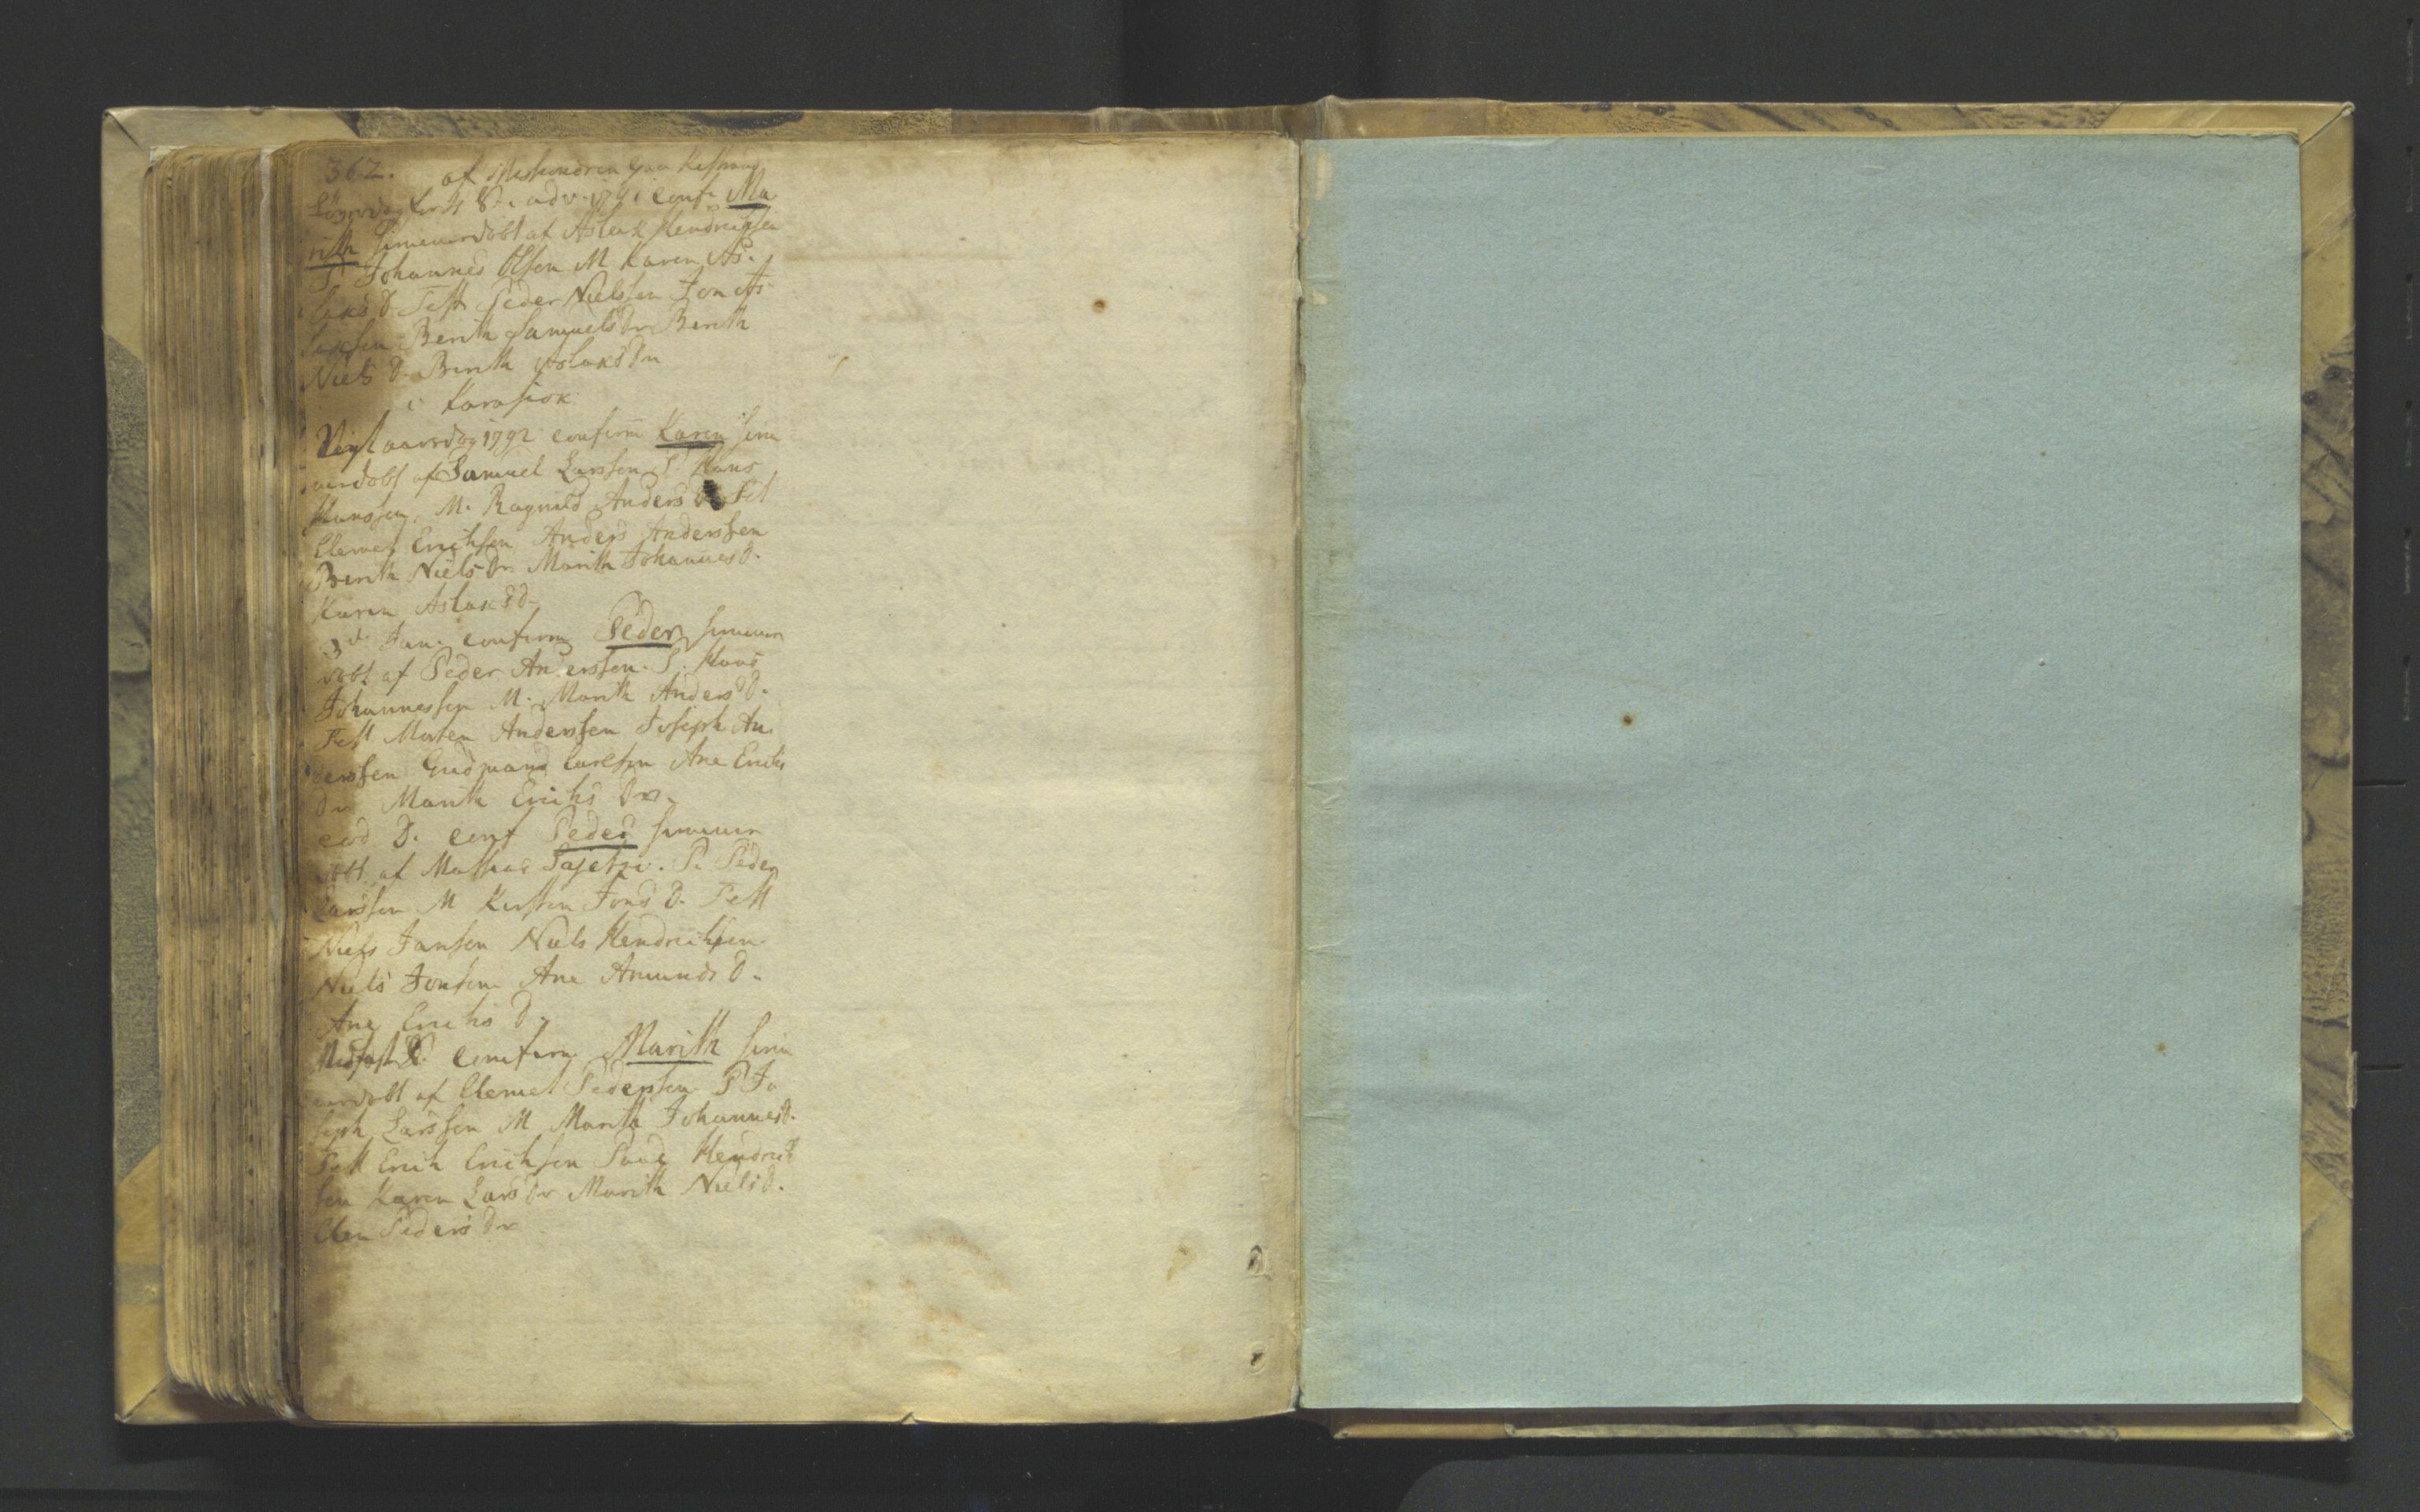 362. af
Løverdag for 4 S. adv. 1791 conf. Ma
rith hiemmedøbt af Aslak Hendrichsen
P. Johannes Olsen M Karen As-
laks D. Test Peder Nielsen Jon As
lachsen Berith Samuels Dr Berith
Niels D. Berith Aslaks Dr
i Karasiok
Nytaarsdag 1792 confirm Karen hiem
medøbt af Samuel Larssen P. Hans
Hanssen, M. Ragnild Anders D. Test
Clemet Erichsen Anders Anderssen
Berith Niels Dr. Marith Johannes D.
Karen Aslaks D.
3d. Jan. confirm Peder hiemme
døbt af Peder Anderssen. P. Hans
Johannessen M. Marith Anders D.
Test. Morten Anderssen Joseph An
derssen Gudmand Carlsen Ane Erichs
Dr Marith Erichs Dr.
eod D. conf Peder hiemme
døbt af Mathias. P. Peder
Larssen M Kirsten Jons D. Test
Niels Jansen Niels Hendrichsen
Niels Jonsen Ane Amunds D.
Ane Erichs D.
Midfast S. confirm Marith hiem
medøbt af Clemet Pedersen P Jo
seph Larssen M Marith Johannes D.
Test Erich Erichsen Poul Hendrich
sen Karen Lars Dr Marith Niels D.
Elen Peders Dr